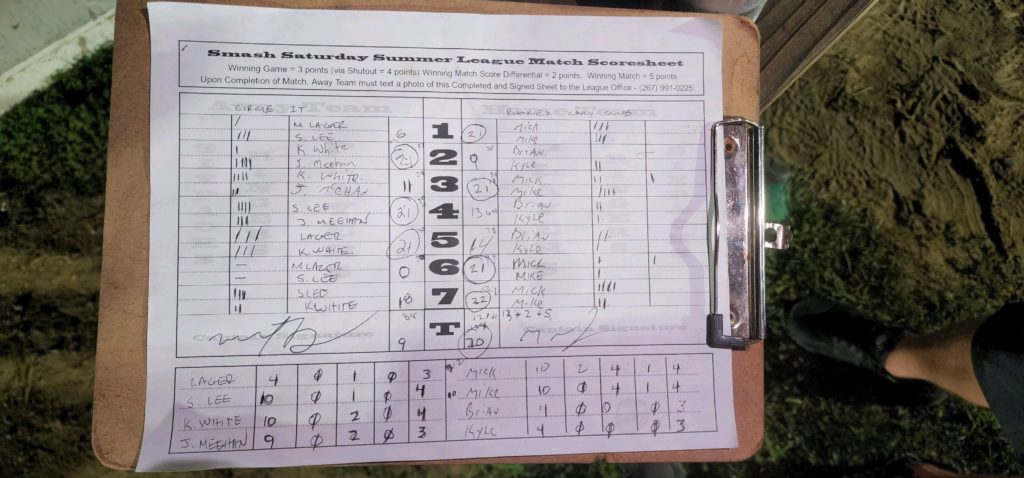 Smash Saturday Summer League Match Scoresheet
Winning Game = 3 points (via Shutout = 4 points) Winning Match Score Differential = 2 points. Winning Match = 5 points
Upon Completion of Match, Away Team must text a photo of this Completed and Signed Sheet to the League Office - (267) 991-0225.
CIRCLE IT ROOKIES ONLY CLUB
M LAGER 6 1 21 Mick
S. LEE Mike
K White 21 2 9 Brian
J. Meehan Kyle
K. WHITE. 11 3 21 Mick
J. MEEHAN Mike
S. LEE 21 4 13 Brian
J. MEEHAN Kyle
LAGER 21 5 14 Brian
K. WHITE Kyle
M LAGER 0 6 21 MICK
S. LEE MIKE
S LEE 18 7 22 Mick
K WHITE Mike
88 13+2+5
9 T 20
Captain Signature
LAGER 4 0 1 0 3 MICK 10 2 4 1 4
S. LEE 10 0 1 0 4 MIKE 10 0 4 1 4
K WHITE 10 0 2 0 4 Brian 4 0 0 0 3
J. MEEHAN 9 0 2 0 3 KYLE 4 0 0 0 3